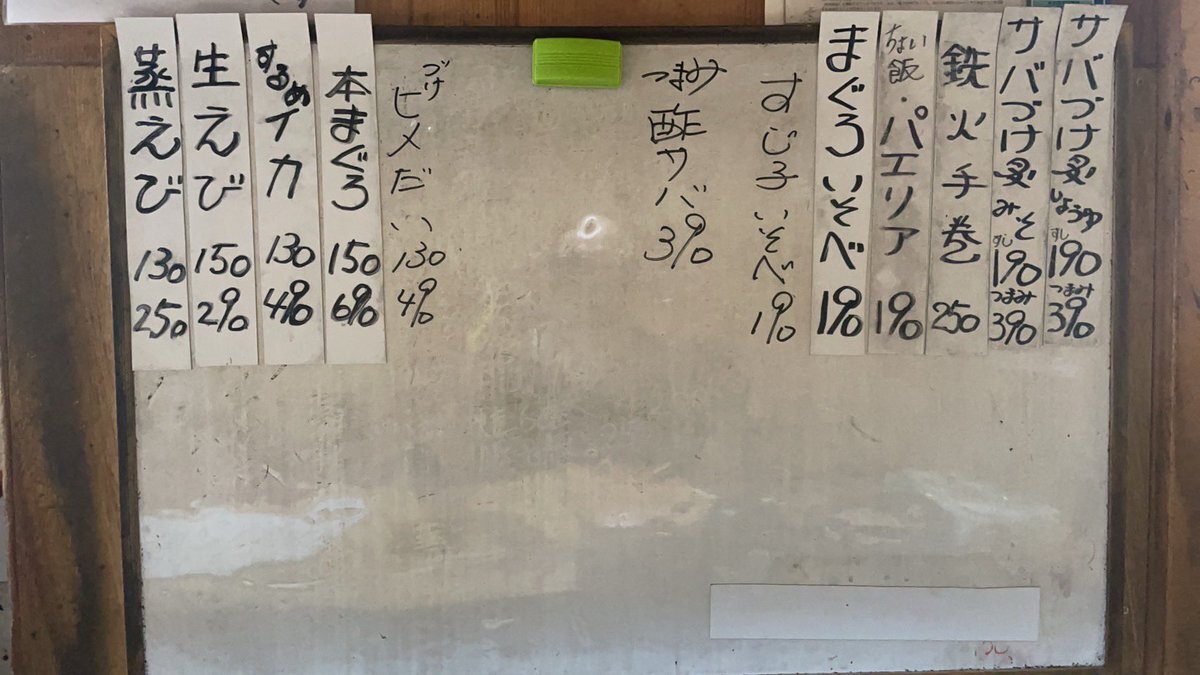 サバづけ炙しょうゆ すし 190 つまみ 390
サバづけ炙みそ すし 190 つまみ 390
鉄火手巻 250
ちょい飯・パエリア 190
まぐろいそべ 190
すじ子いそべ 190
つまみ酢サバ 390
づけヒメだい 130 490
本まぐろ 150 690
するめイカ 130 490
生えび 150 290
蒸えび 130 250